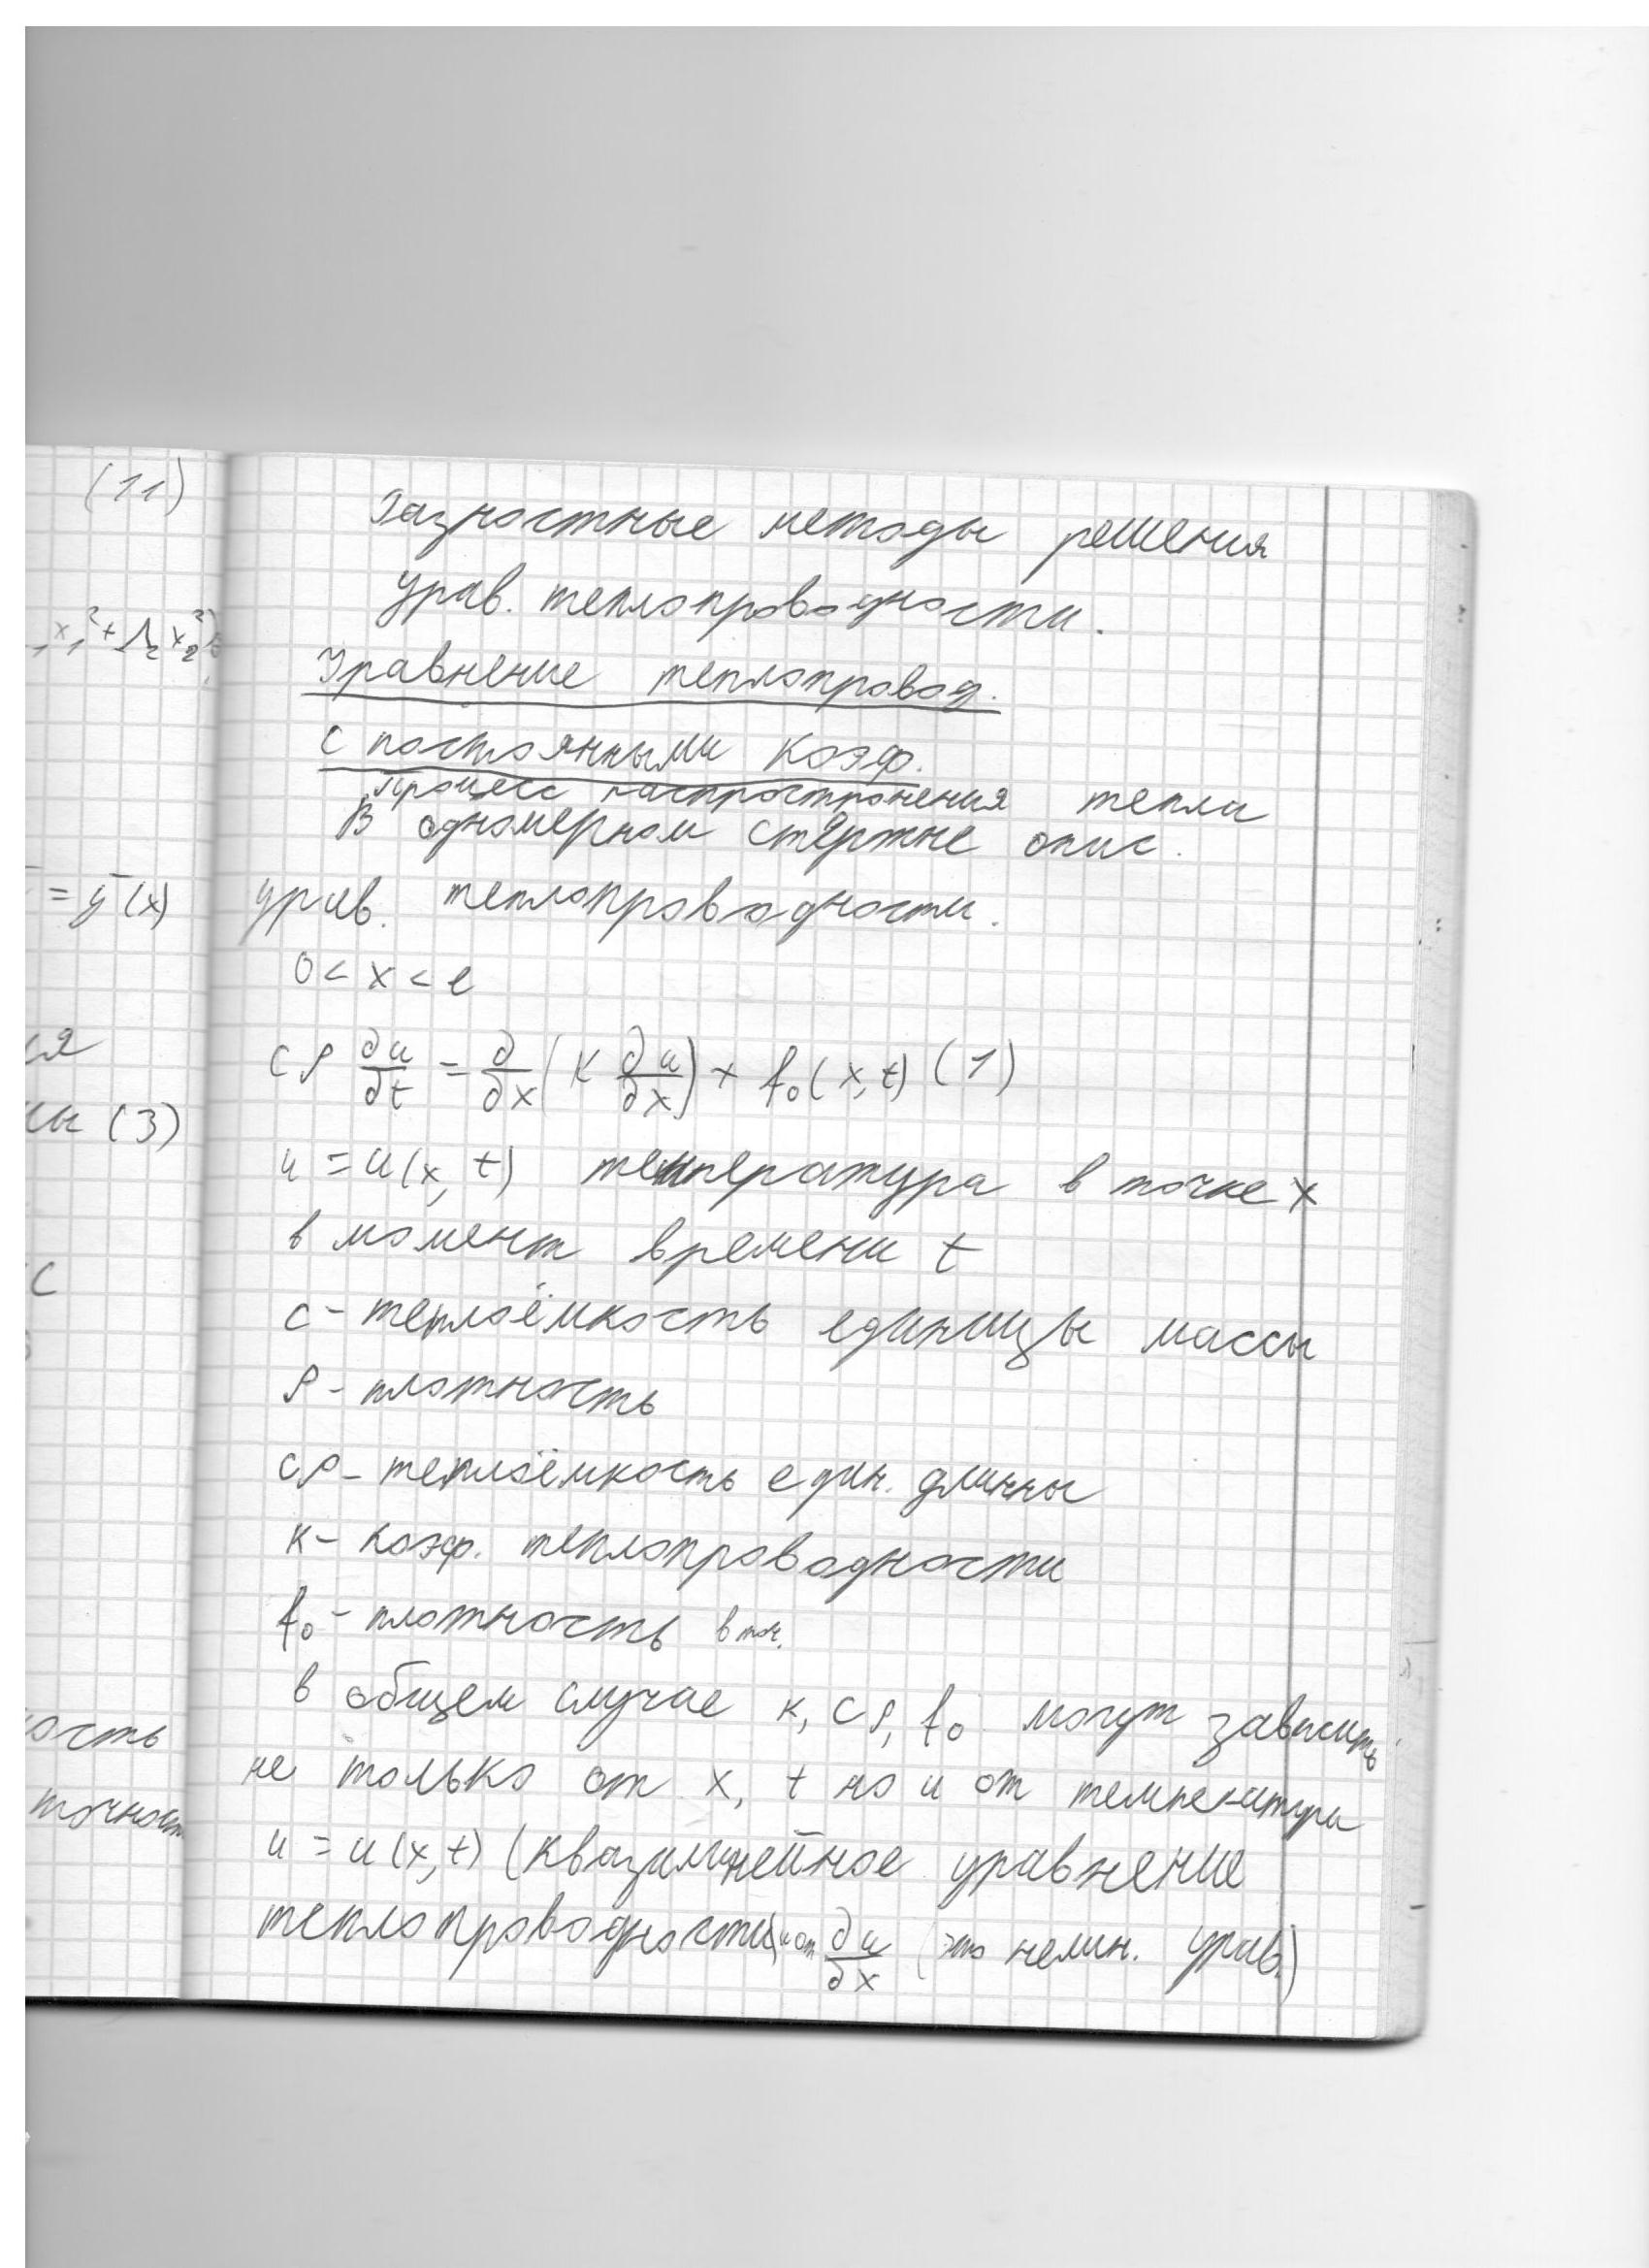 (11)
x₁² + Λ₂x₂²
= ȳ(x)
ся
(3)
с
ость
точност
Разностные методы решения
урав. теплопроводности.
Уравнение теплопровод.
с постоянными коэф.
Процесс распространения тепла
В одномерном стержне опис.
урав. теплопроводности.
0 < x < l
cρ ∂u/∂t = ∂/∂x (k ∂u/∂x) + f₀(x,t) (1)
u = u(x, t) температура в точке x
в момент времени t
c - теплоёмкость единицы массы
ρ - плотность
cρ - теплоёмкость един. длинны
к - коэф. теплопроводности
f₀ - плотность в точ.
в общем случае к, cρ, f₀ могут зависить
не только от x, t но и от температуры
u = u(x,t) (квазилинейное уравнение
теплопроводности) и от ∂u/∂x (это нелин. урав.)